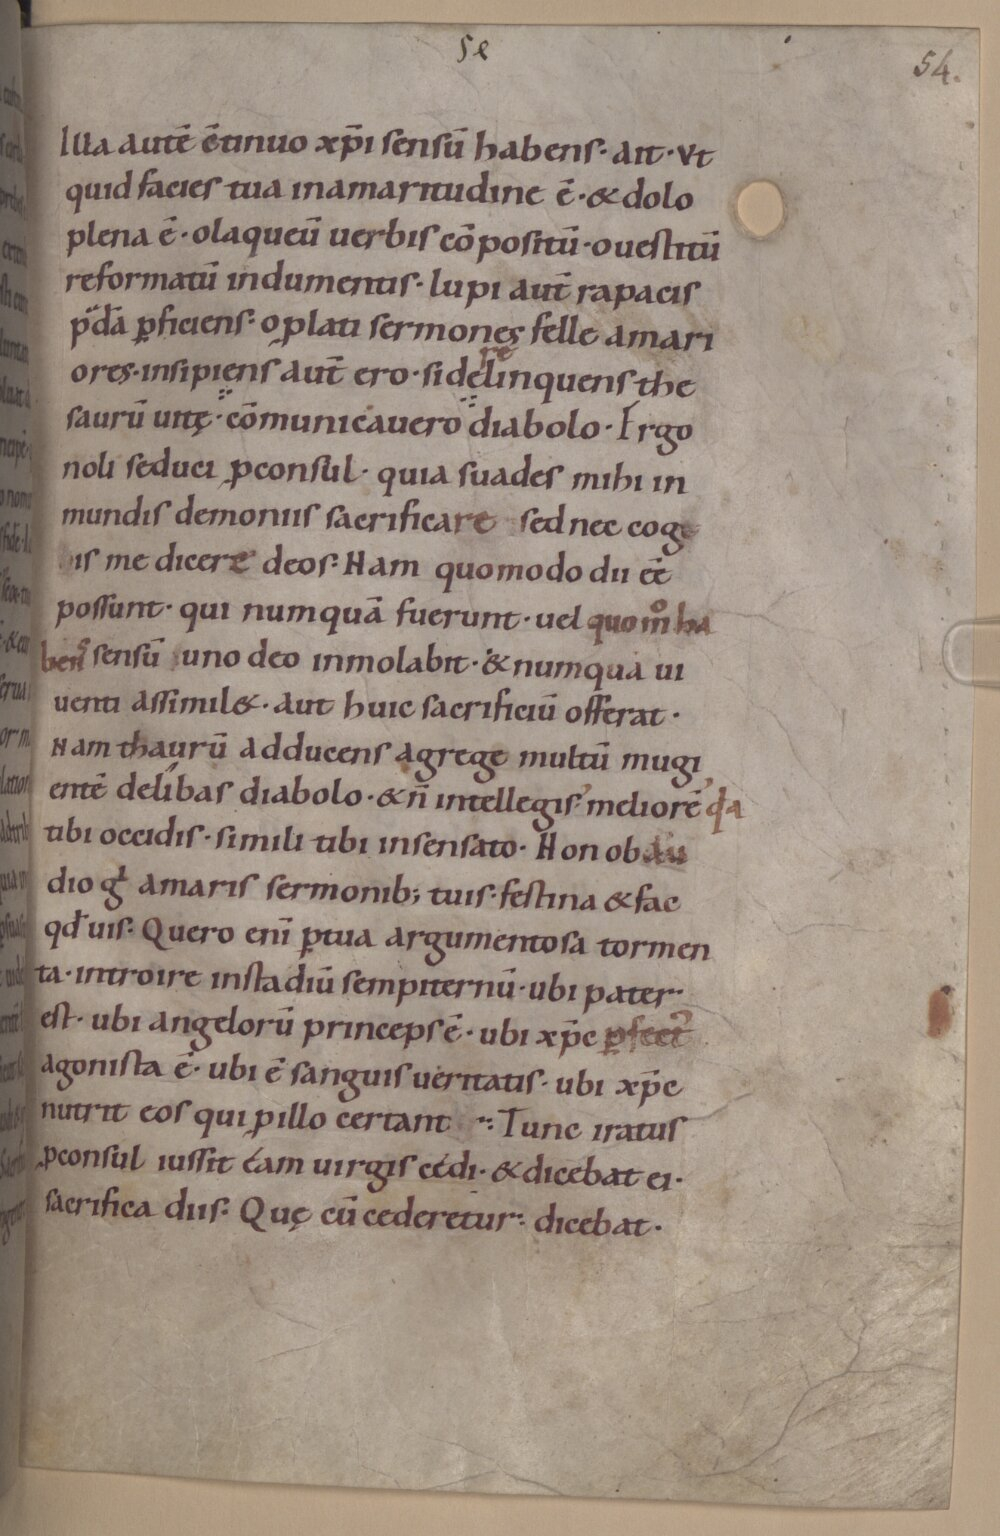 se
54.
Illa autē ētinuo xp̄i sensū habens· ait· Vt
quid facies tua inamaritudine ē· & dolo
plena ē· olaqueū uerbis cōpositū· o uestitū
reformatū indumentis· lupi aut̄ rapacis
p̄dā ꝑficiens· o ꝓlati sermones felle amari
ores· insipiens aut̄ ero· si derelinquens the
saurū uitę· cōmunicauero diabolo· Ergo
noli seduci ꝓconsul· quia suades mihi in
mundis demoniis sacrificare sed nec coge
is me dicere deos· Nam quomodo dii ēē
possunt· qui numquā fuerunt· uel quom̊ ha
bens sensū uno deo inmolabit· & numqua ui
uenti assimil&· aut huic sacrificiū offerat·
Nam thaurū adducens agrege multū mugi
entē delibas diabolo· & n̄ intellegis meliorē q̄a
tibi occidis· simili tibi insensato· Non obau
dio g̊ amaris sermonib; tuis· festina & fac
qđ uis· Quero enī ꝑtua argumentosa tormen
ta· introire instadiū sempiternū· ubi pater·
est· ubi angelorū princeps ē· ubi xp̄c ꝑfect᾽
agonista ē· ubi ē sanguis ueritatis· ubi xp̄c
nutrit eos qui ꝓ illo certant· Tunc iratus
ꝓconsul iussit eam uirgis cędi· & dicebat ei·
sacrifica diis· Quę cū cederetur· dicebat·